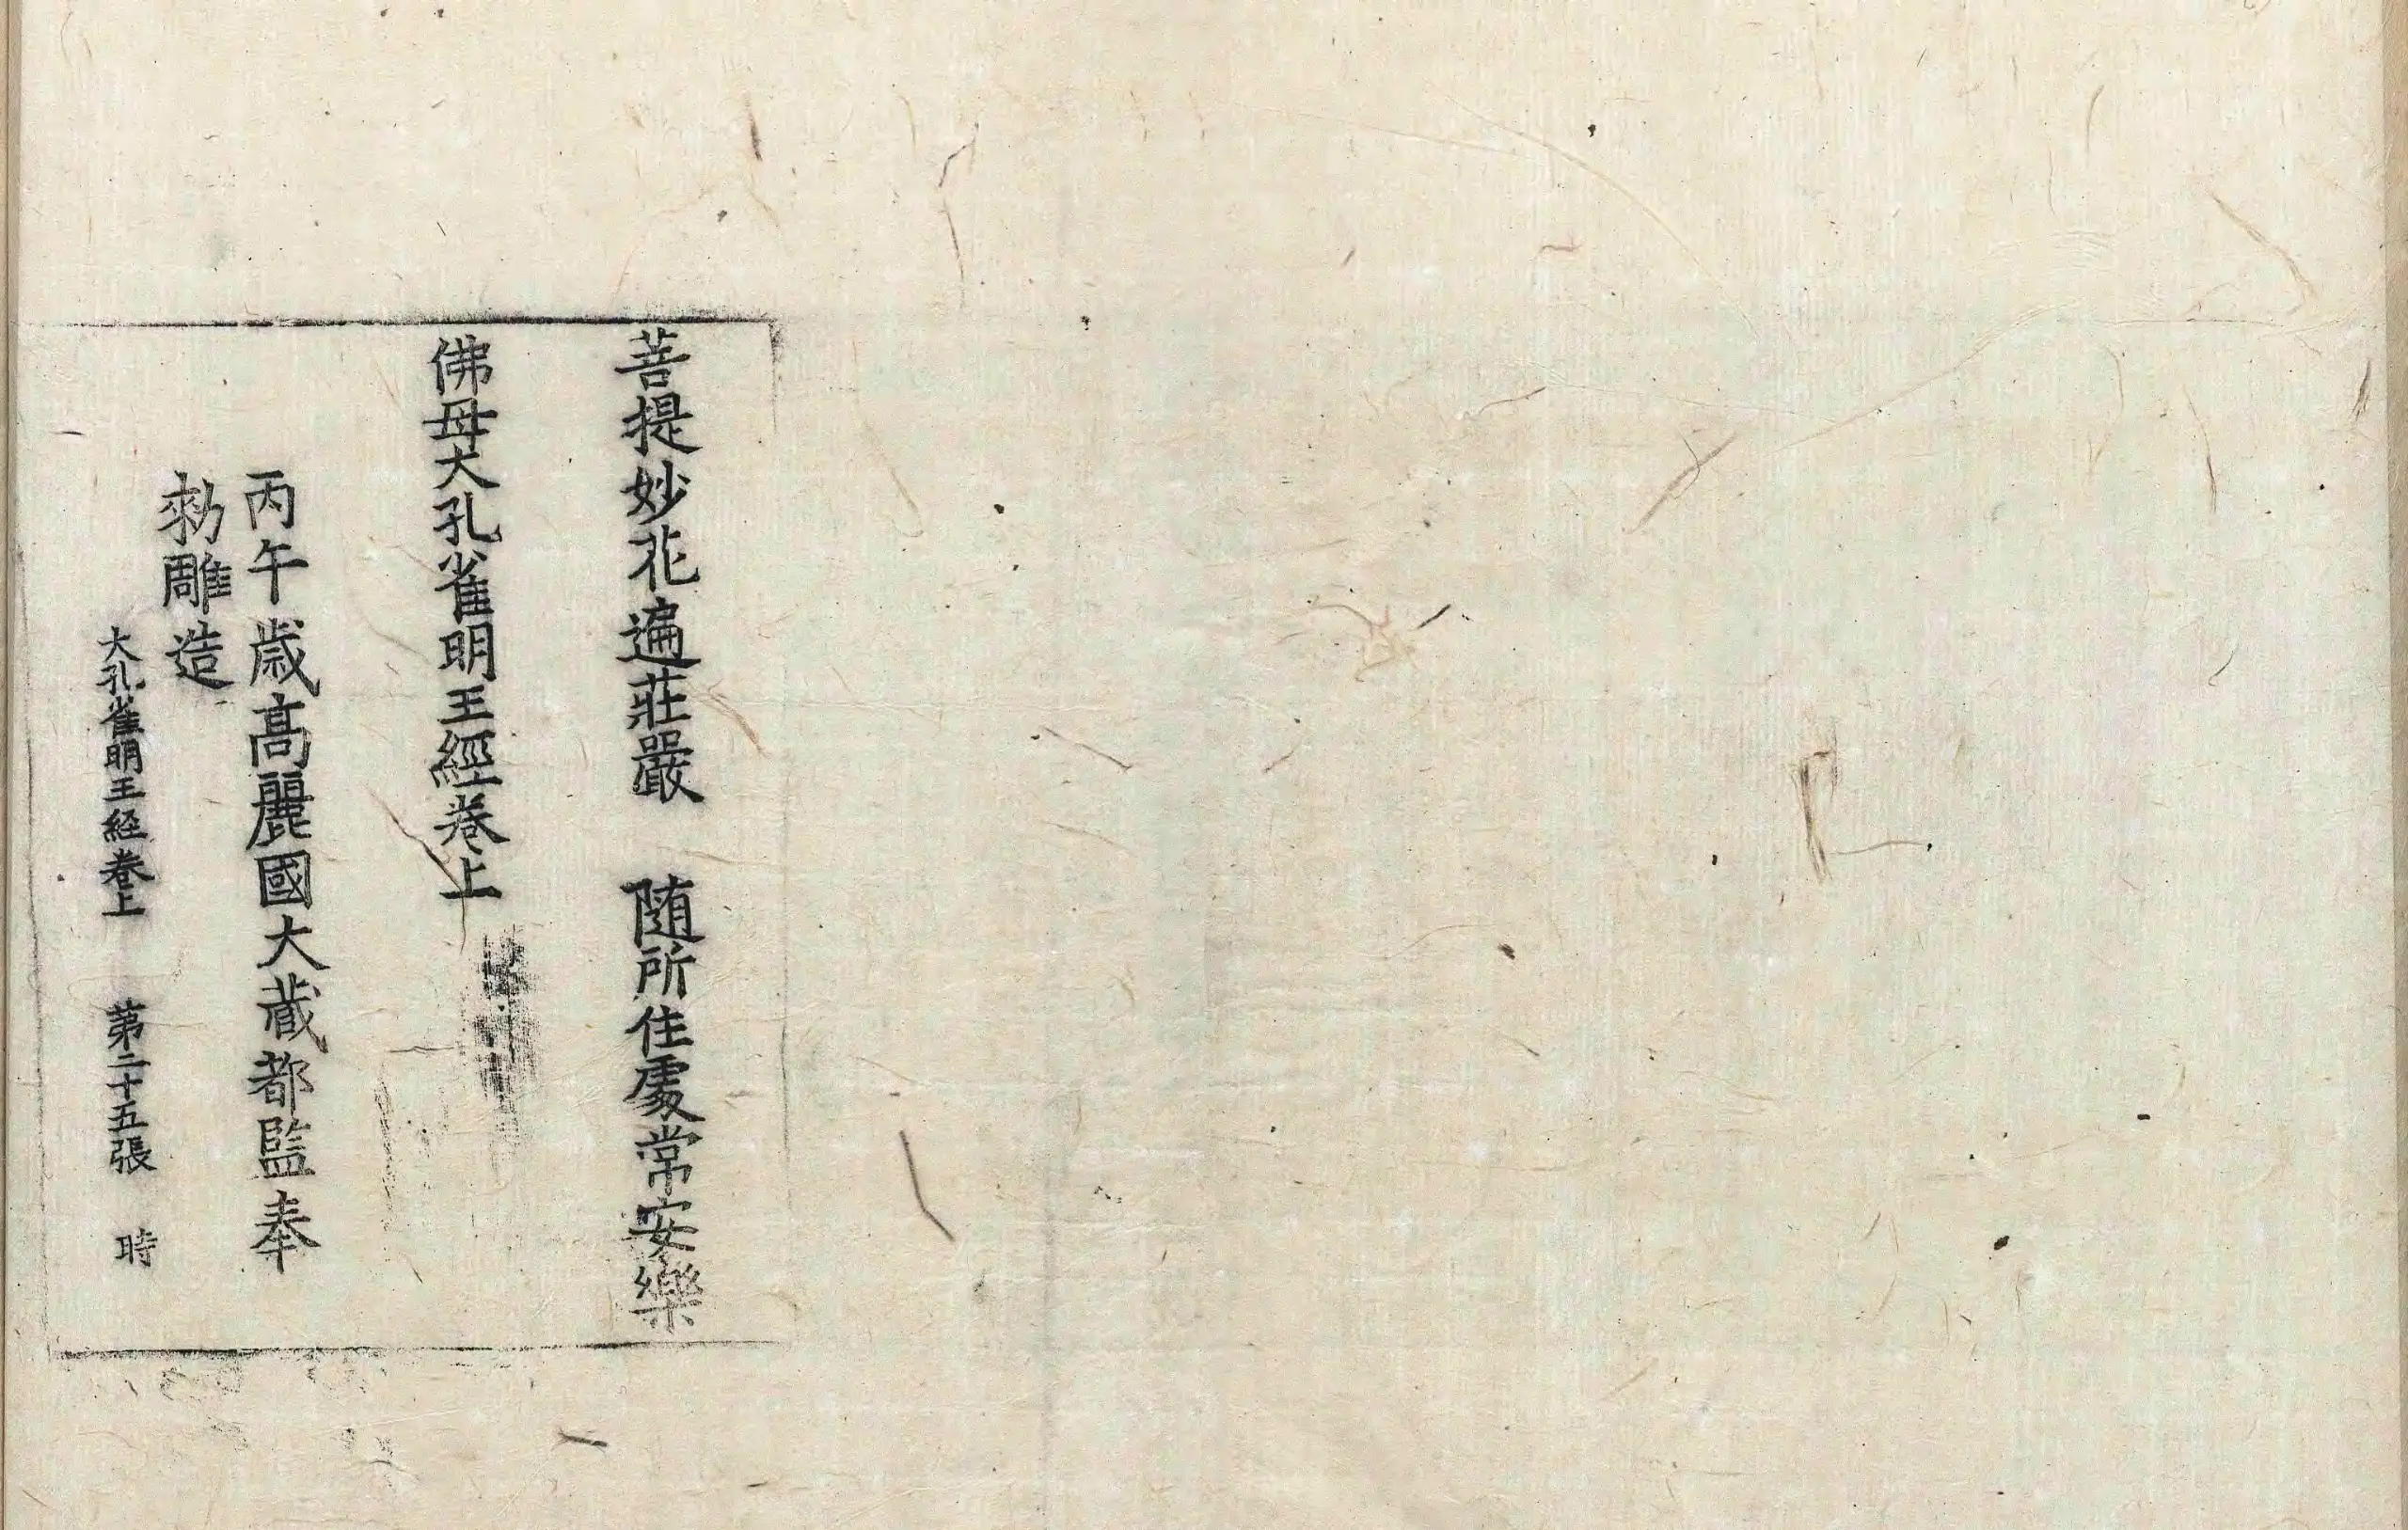 菩提妙花遍莊嚴　随所住處常安樂
佛母大孔雀明王經卷上
丙午歳高麗國大蔵都監奉
勑雕造
大孔雀明王経卷上　第二十五張　時